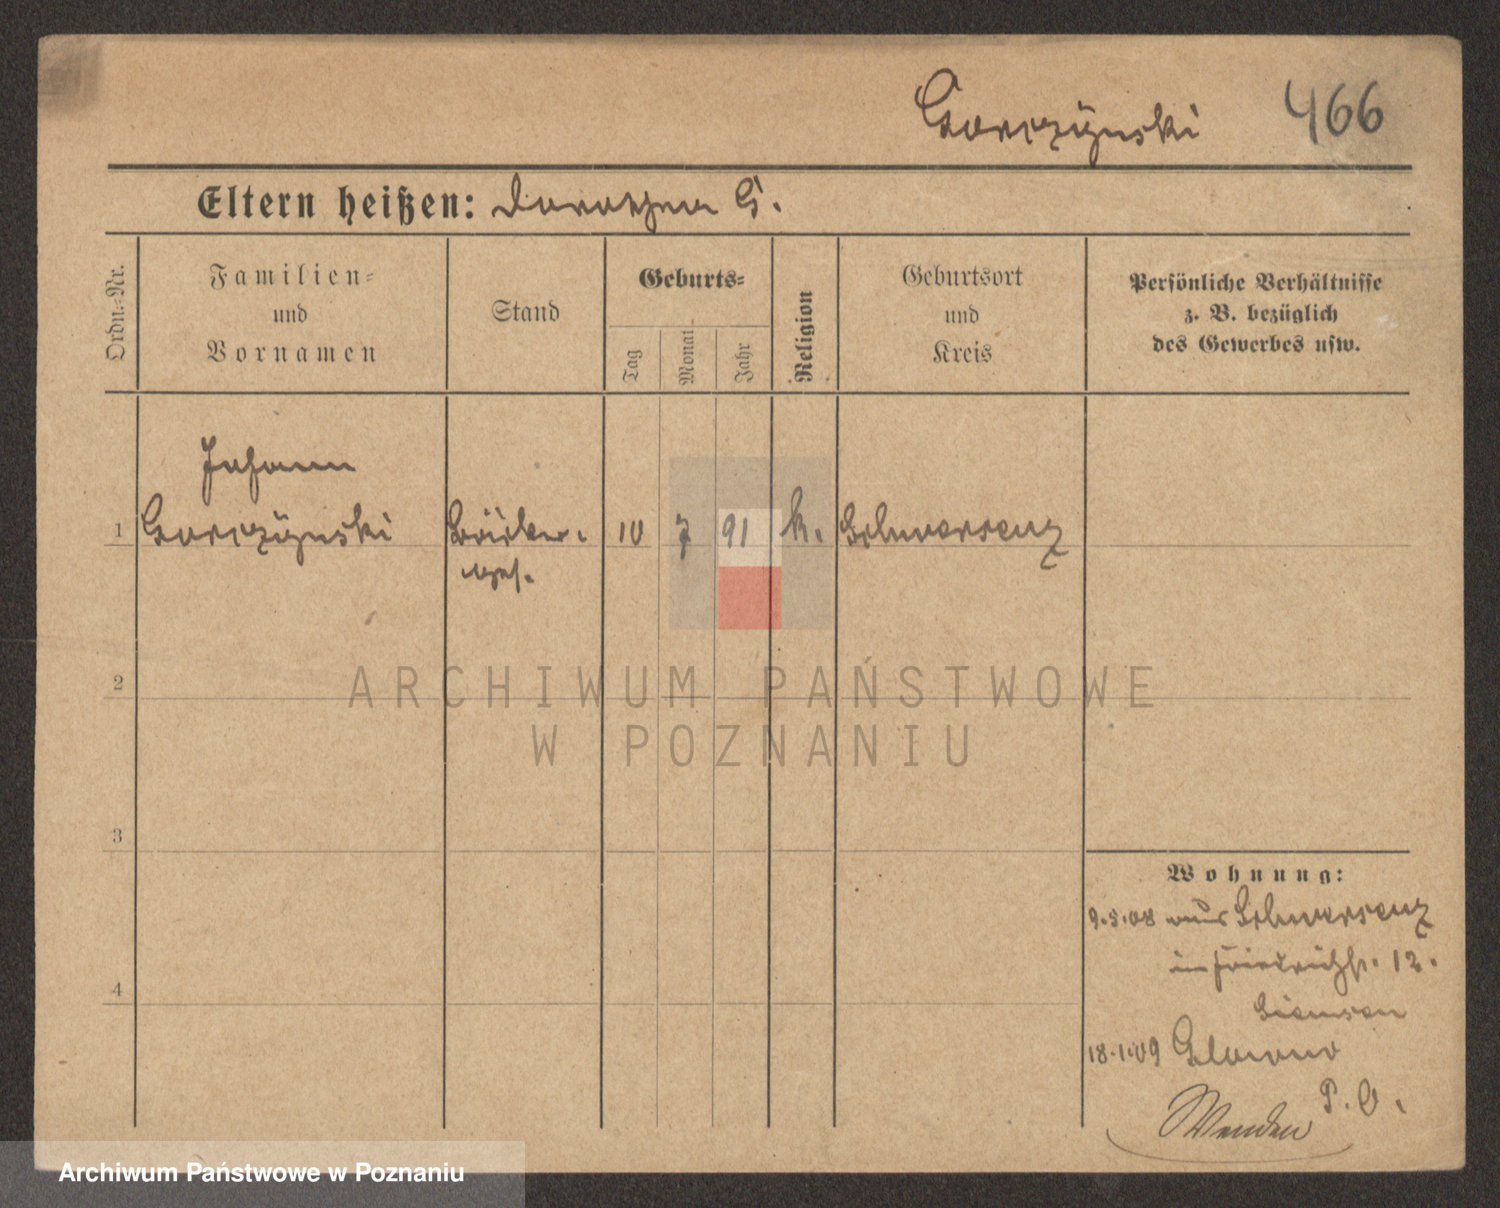 Gorczÿnski 466
Eltern heißen: Dorothea G.
Ordn.-Nr.
Familien-
und
Vornamen
Stand
Geburts-
Tag
Monat
Jahr
Religion
Geburtsort
und
Kreis
Persönliche Verhältnisse
z. B. bezüglich
des Gewerbes usw.
Johann
1 Gorczÿnski Bäcker- 10 7 91 k. Schwersenz
ges.
2
3
4
ARCHIWUM PAŃSTWOWE
W POZNANIU
Wohnung:
9.5.08 aus Schwersenz
in Friedrichstr. 12.
18.1.09 Glowno
P. O.
Wenden
Archiwum Państwowe w Poznaniu